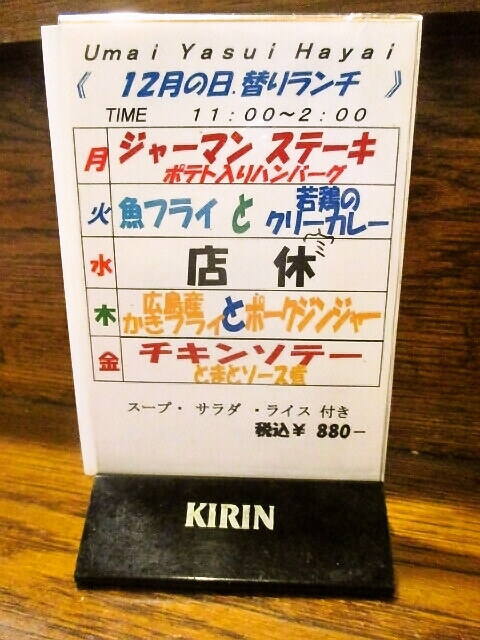 Umai Yasui Hayai
《 12月の日.替りランチ 》
TIME 11:00～2:00
月 ジャーマン ステーキ
ポテト入りハンバーグ
火 魚フライ と 若鶏の
クリーカレー
水 店休
木 広島産
かきフライ と ポークジンジャー
金 チキンソテー
とまとソース煮
スープ・ サラダ ・ライス 付き
税込¥ 880-
KIRIN